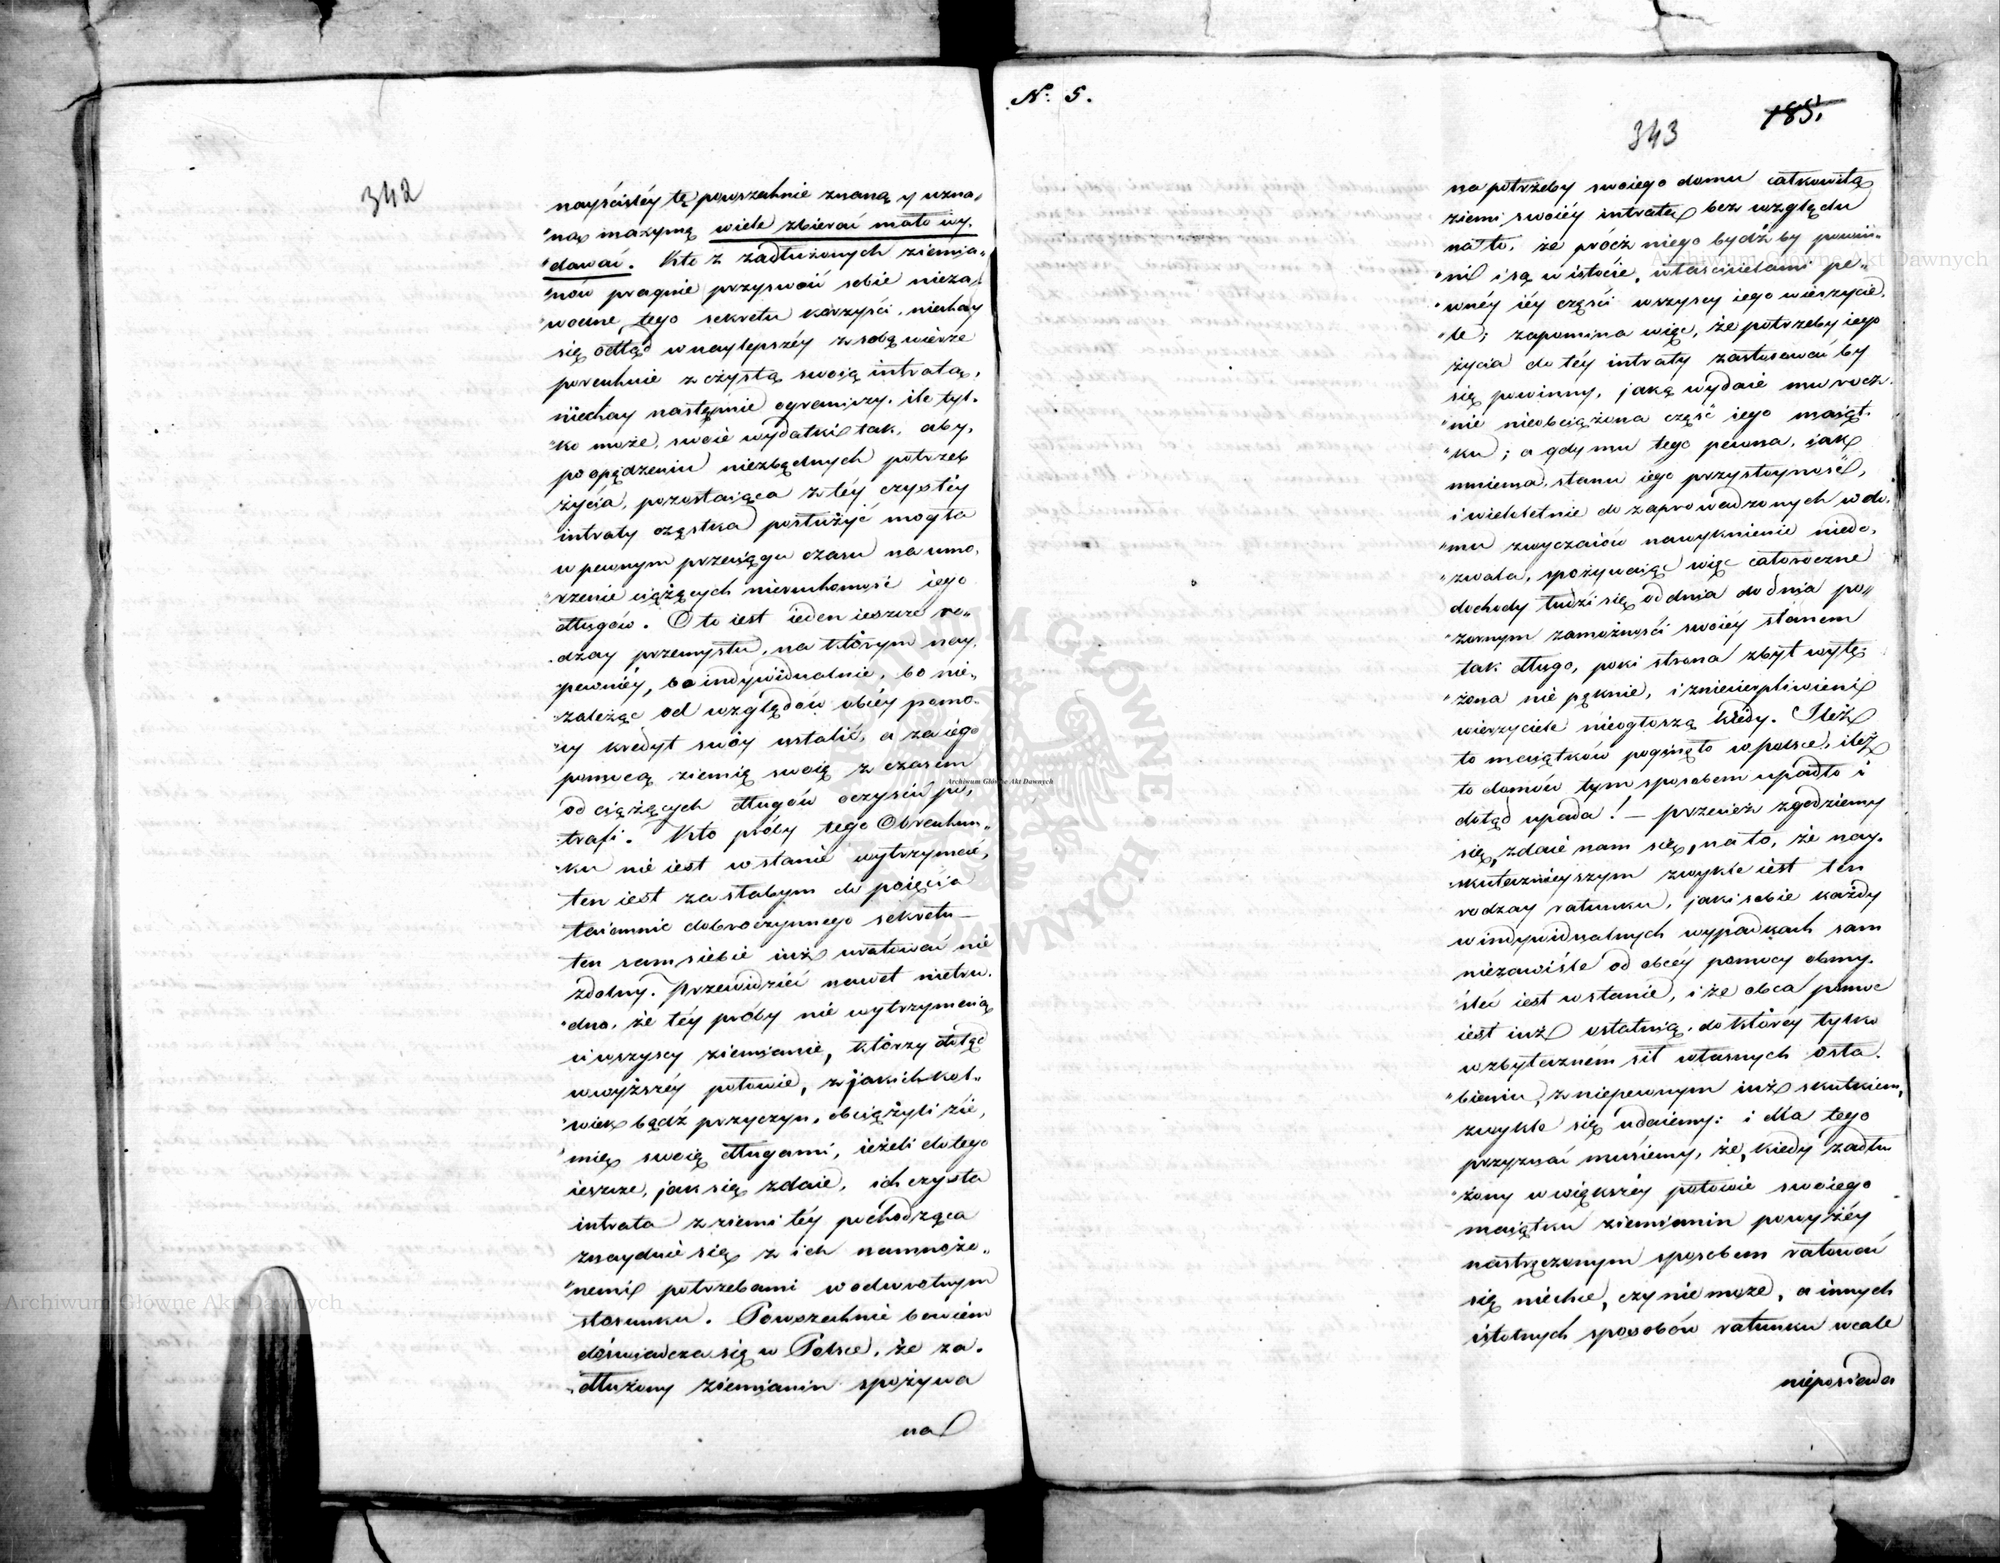 342
nayściśléy tę powszechnie znaną y uzna,
"ną maxymą wiele zbierać mało wy,
"dawać. Kto z zadłużonych ziemia,,
"nów pragnie przyswoić sobie nieza,
wodne tego sekretu korzyści, niechay
się odtąd w naylepszéy z sobą wierze
porachuie z czystą swoią intratą,
niechay następnie ograniczy, ile tyl,
"ko może, swoie wydatki tak, aby,
po opędzeniu niezbędnych potrzeb
życia, pozostaiąca z téy czystéy
intraty cząstka posłużyć mogła
w pewnym przeciągu czasu na umo,
"rzenie ciążących nieruchomość iego
długów. Oto iest ieden ieszcze ro,,
"dzay przemysłu, na którym nay,
"pewniéy, bo indywidualnie, bo nie,,
"zależąc od względów obcéy pomo,
"cy kredyt swóy ustalić, a za iego
pomocą ziemię swoię z czasem
od ciążących długów oczyścić po,
"trafi. Kto próby tego Obrachun,,
"ku nie iest w stanie wytrzymać,
ten iest za słabym do poięcia
taiemnic dobroczynnego sekretu —
ten sam siebie iuż uratować nie
zdolny. Przewidzieć nawet nietru,
"dno, że téy próby nie wytrzymaią
ci wszyscy ziemianie, którzy dotąd
w wyższéy połowie, z jakichkol,,
"wiek bądź przyczyn, obciążyli zie,
"mię swoię długami, ieżeli do tego
ieszcze, jak się zdaie, ich czysta
intrata z ziemi téy pochodząca
znayduie się z ich namnożo,,
"nemi potrzebami w odwrotnym
stosunku. Powszechnie bowiem
doświadcza się w Polsce, że za,
"dłużony ziemianin spożywa
na
N: 5.
343
185.
na potrzeby swoiego domu całkowitą
ziemi swoiéy intratę bez względu
na to, że prócz niego bydź by powin,,
"ni i są w istocie, właścicielami pe,,
"wnéy iéy części wszyscy iego wierzycie,
"le; zapomina więc, że potrzeby iego
życia do téy intraty zastosować by
się powinny, jaką wydaie mu rocz,
"nie nieobciążona część iego maiąt,
"ku; a gdy mu tego pewna, jak
mniema, stanu iego przystoyność,
i wieloletnie do zaprowadzonych w do,
"mu zwyczaiów nawyknienie niedo,
"zwala, spożywaiąc więc całoroczne
dochody łudzi się od dnia do dnia po,,
"zornym zamożności swoiéy stanem
tak długo, poki strona zbyt wytę,
"żona nie pęknie, i zniecierpliwieni
wierzyciele nieogłoszą kridy. Ileż
to maiątków poginęło w polsce, ileż
to domów tym sposobem upadło i
dotąd upada! — Przecież zgodziemy
się, zdaie nam się, na to, że nay,
"skutecznieyszym zwykle iest ten
rodzay ratunku, jaki sobie każdy
w indywidualnych wypadkach sam
niezawiśle od obcéy pomocy obmy,
"śleć iest w stanie, i że obca pomoc
iest iuż ostatnią, do któréy tylko
w zbytecznem sił własnych osła,
"bieniu, z niepewnym iuż skutkiem,
zwykle się udaiemy: i dla tego
przyznać musiemy, że, kiedy zadłu
"żony w większéy połowie swoiego
maiątku ziemianin powyżéy
nastręczonym sposobem ratować
się niechce, czy nie może, a innych
istotnych sposobów ratunku wcale
nieposiada
Archiwum Główne Akt Dawnych
Archiwum Główne Akt Dawnych
Archiwum Główne Akt Dawnych